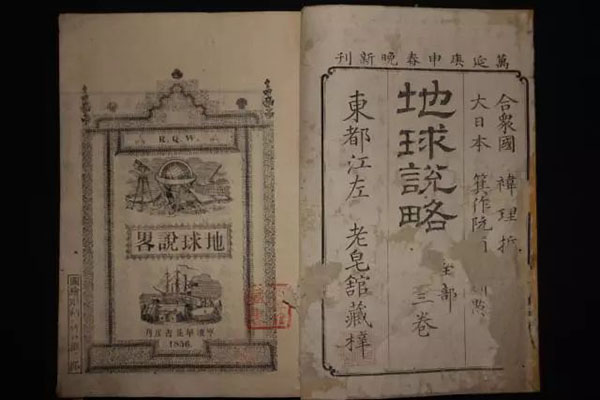 萬延庚申春晚新刊
合衆國 褘理哲
大日本 箕作阮
地球說略
全部 三卷
東都江左 老皂館藏梓
R.Q.W.
地球說畧
寧波華花書房刊
1856